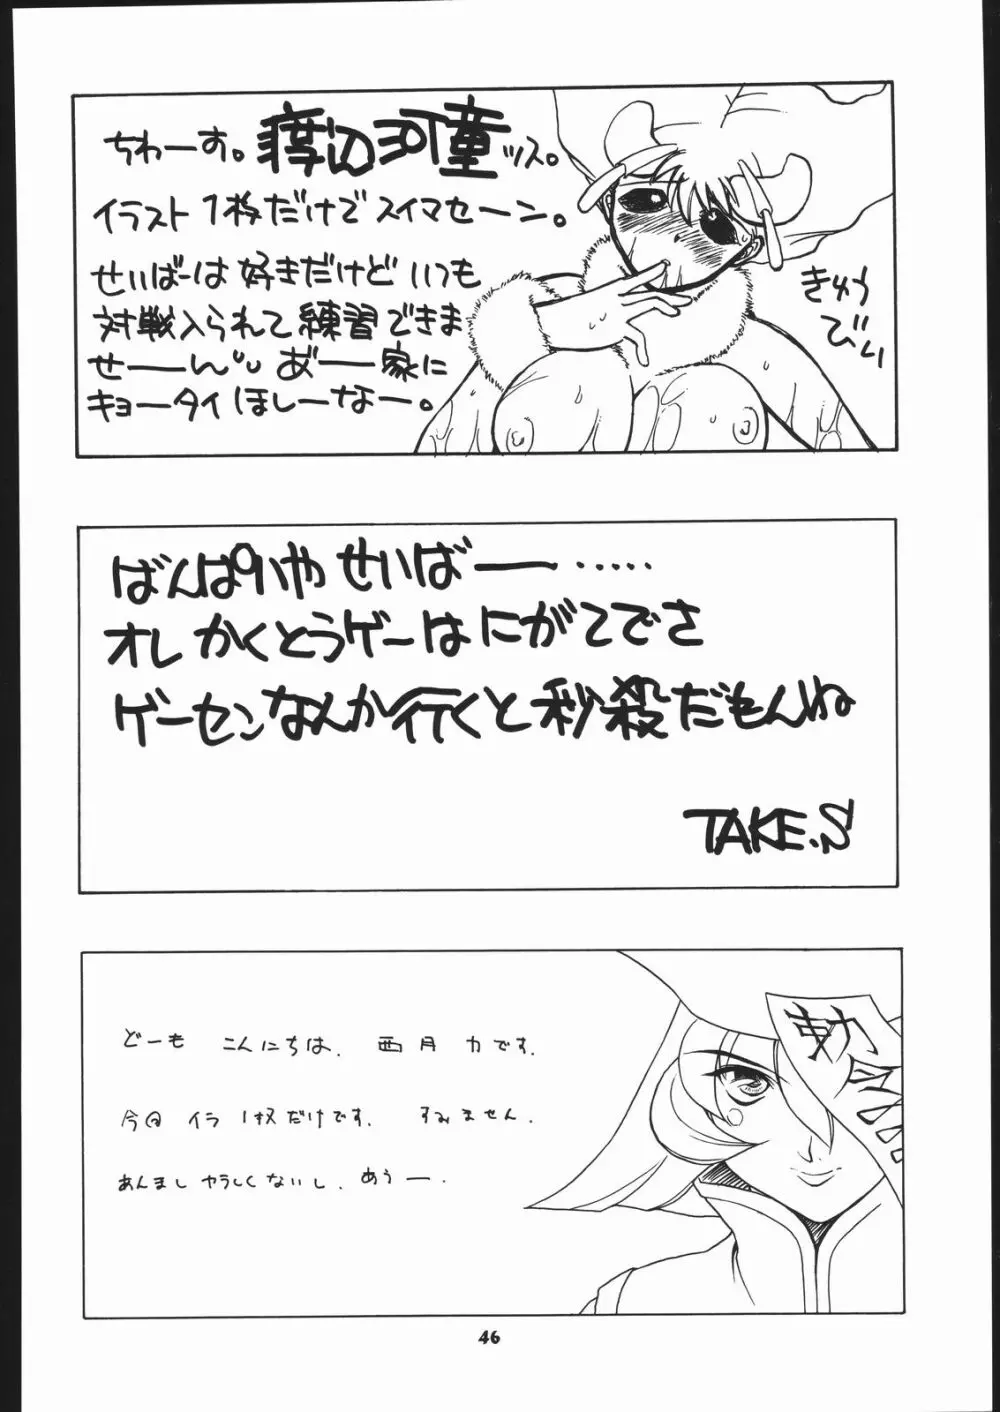 ちわーす。痺辺河童ッス。
イラスト1枚だけでスイマセーン。
せいばーは好きだけどいつも
対戦入られて練習できま
せーーん あ゛ー家に
キョータイほしーなー。
きゅうびい
ばんぱいやせいばー……
オレかくとうゲーはにがてでさ
ゲーセンなんか行くと秒殺だもんね
TAKE.S
どーも こんにちは、西月力です。
今回イラ1枚だけです。すみません。
あんましヤらしくないし、あうー。
勅
46